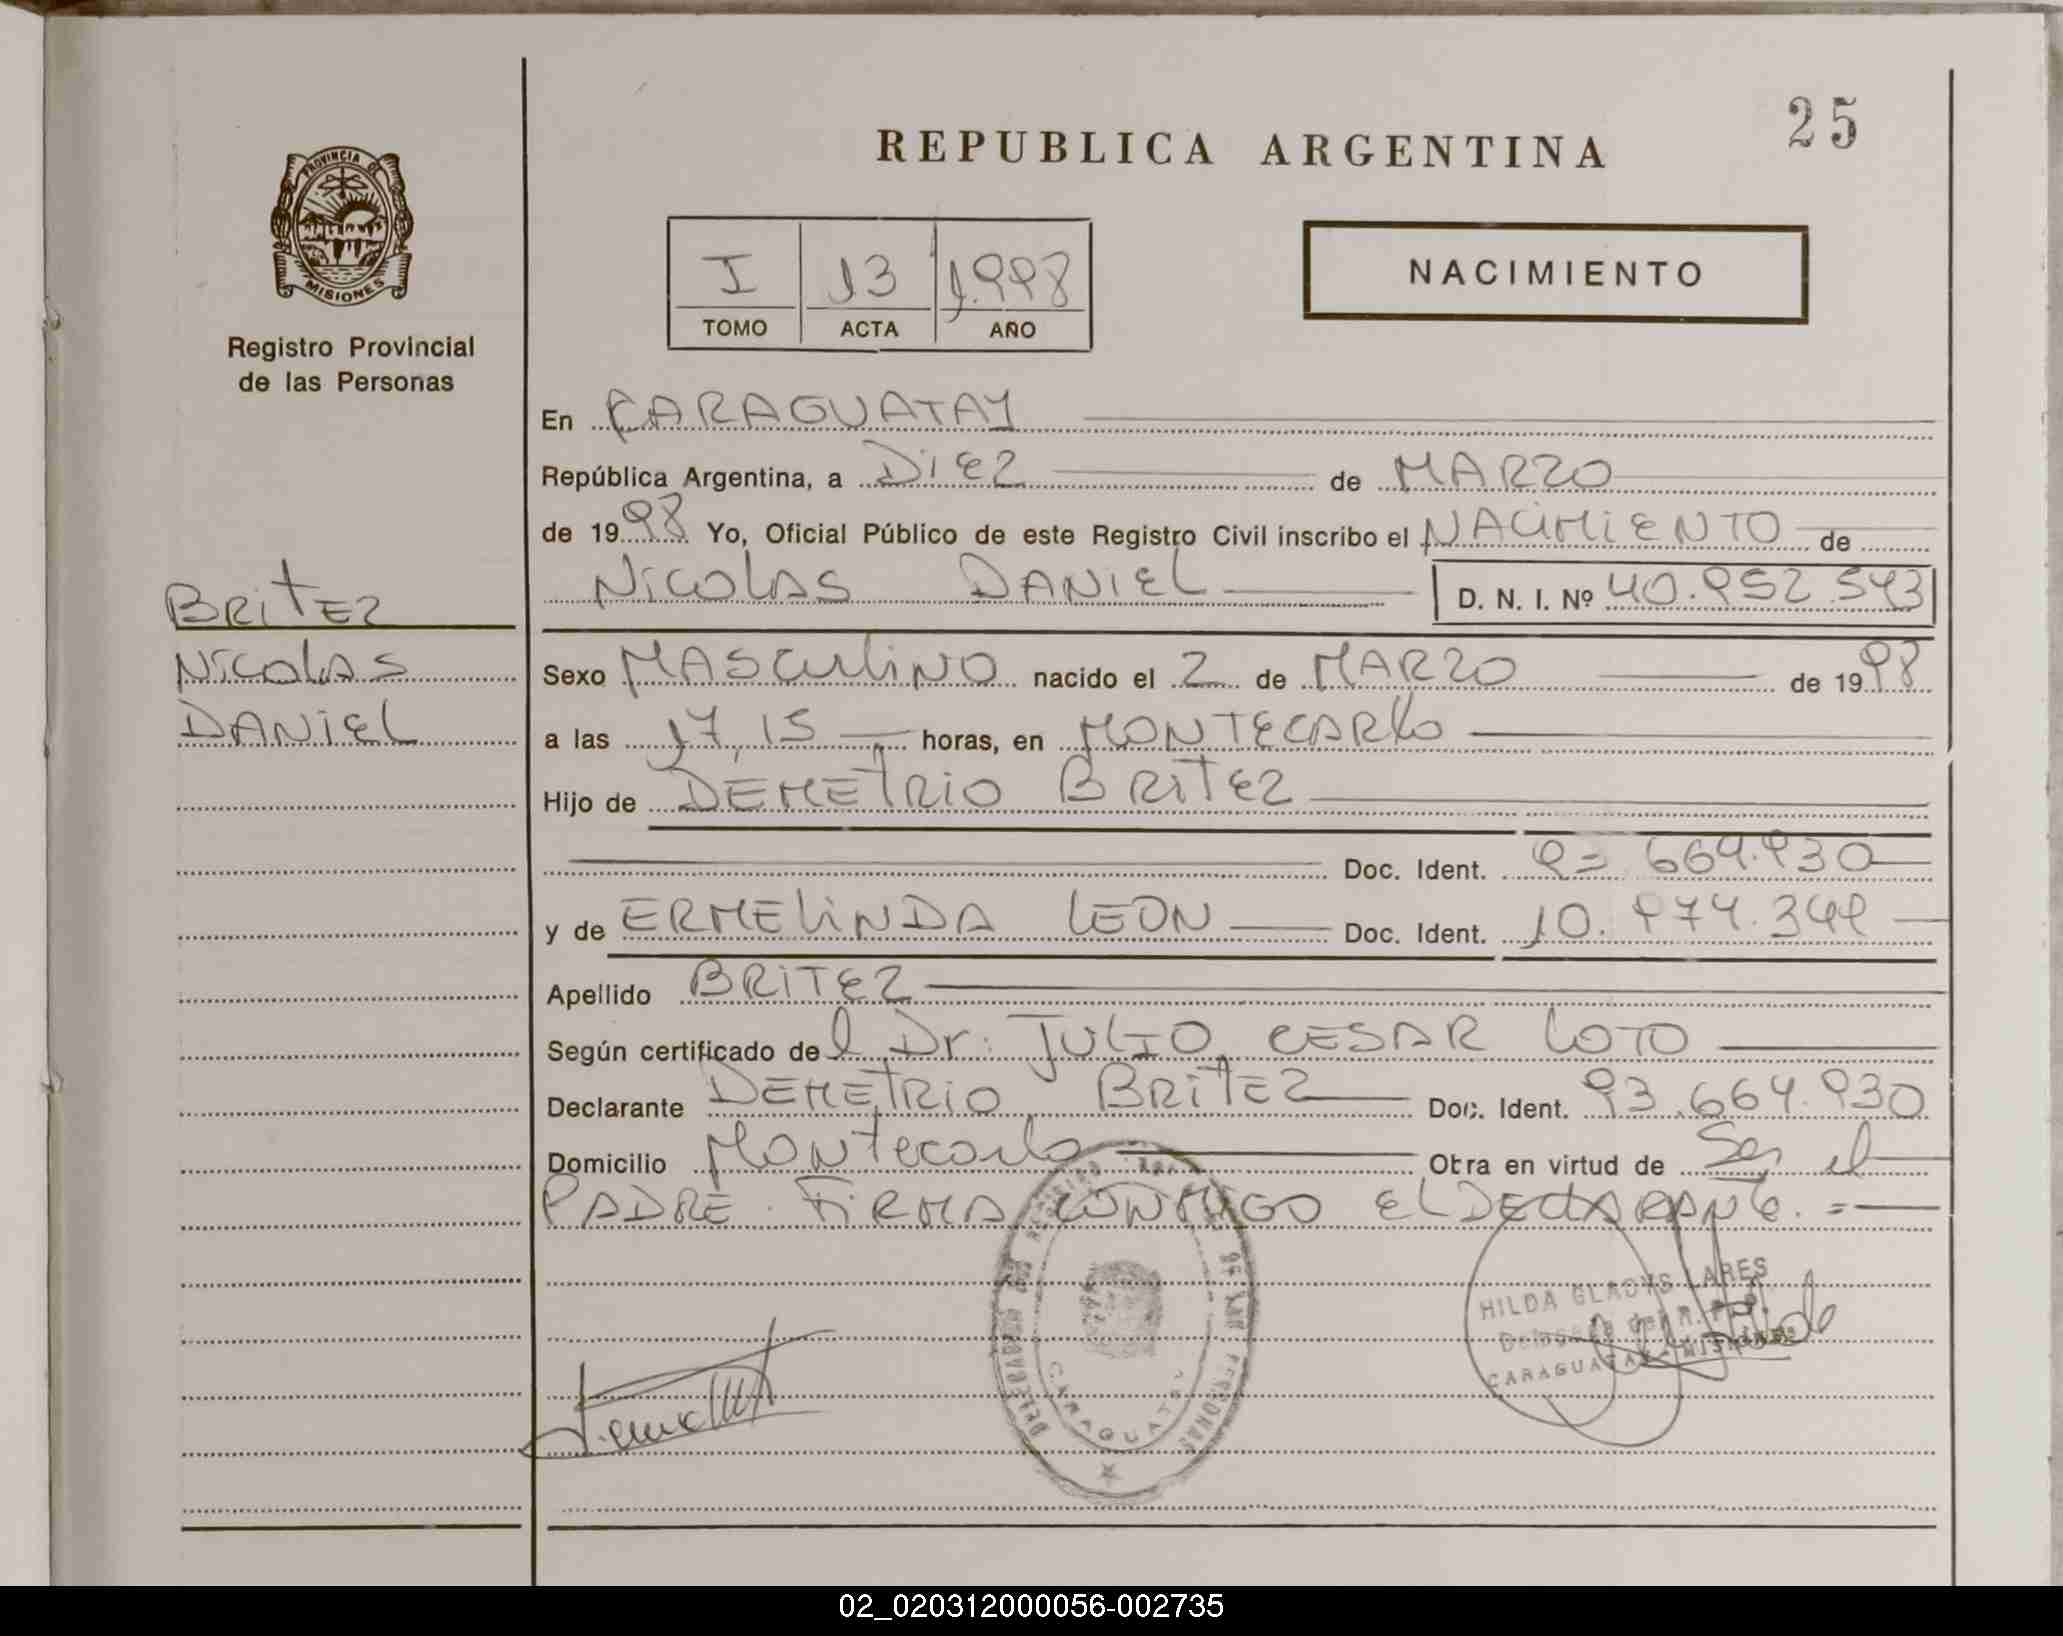 25
REPUBLICA ARGENTINA
PROVINCIA DE
MISIONES
Registro Provincial
de las Personas
I 13 1.998
TOMO ACTA AÑO
NACIMIENTO
En CARAGUATAY
República Argentina, a DIEZ de MARZO
de 1998 Yo, Oficial Público de este Registro Civil inscribo el NACIMIENTO de
NICOLAS DANIEL D. N. I. Nº 40.952.543
BRITEZ
NICOLAS
DANIEL
Sexo MASCULINO nacido el 2 de MARZO de 1998
a las 17,15 horas, en MONTECARLO
Hijo de DEMETRIO BRITEZ
Doc. Ident. 93.664.930
y de ERMELINDA LEON Doc. Ident. 10.974.349
Apellido BRITEZ
Según certificado del Dr. JULIO CESAR LOTO
Declarante DEMETRIO BRITEZ Doc. Ident. 93.664.930
Domicilio Montecarlo Otra en virtud de Ser el
PADRE. FIRMA CONMIGO EL DECLARANTE. =
HILDA GLADYS LARES
Delegada del R. P. P.
CARAGUATAY - MISIONES
DELEGACION DEL REGISTRO DE LAS PERSONAS
CARAGUATAY
02_020312000056-002735